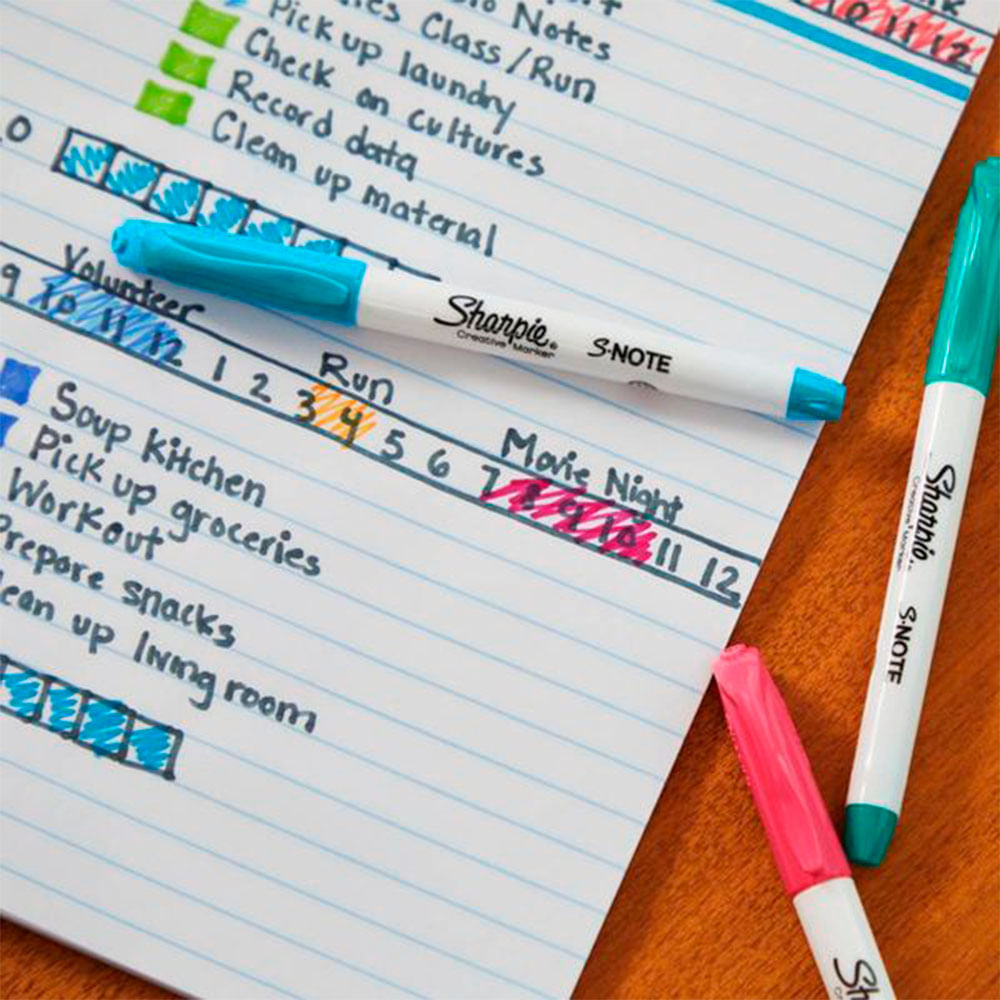 10 11 12
Notes
Class/Run
Pick up laundry
Check on cultures
Record data
Clean up material
Volunteer
Run
Movie Night
9 10 11 12 1 2 3 4 5 6 7 8 9 10 11 12
Soup Kitchen
Pick up groceries
Workout
Prepare snacks
Clean up living room
Sharpie
Creative Marker
S·NOTE
Sharpie
Creative Marker
S·NOTE